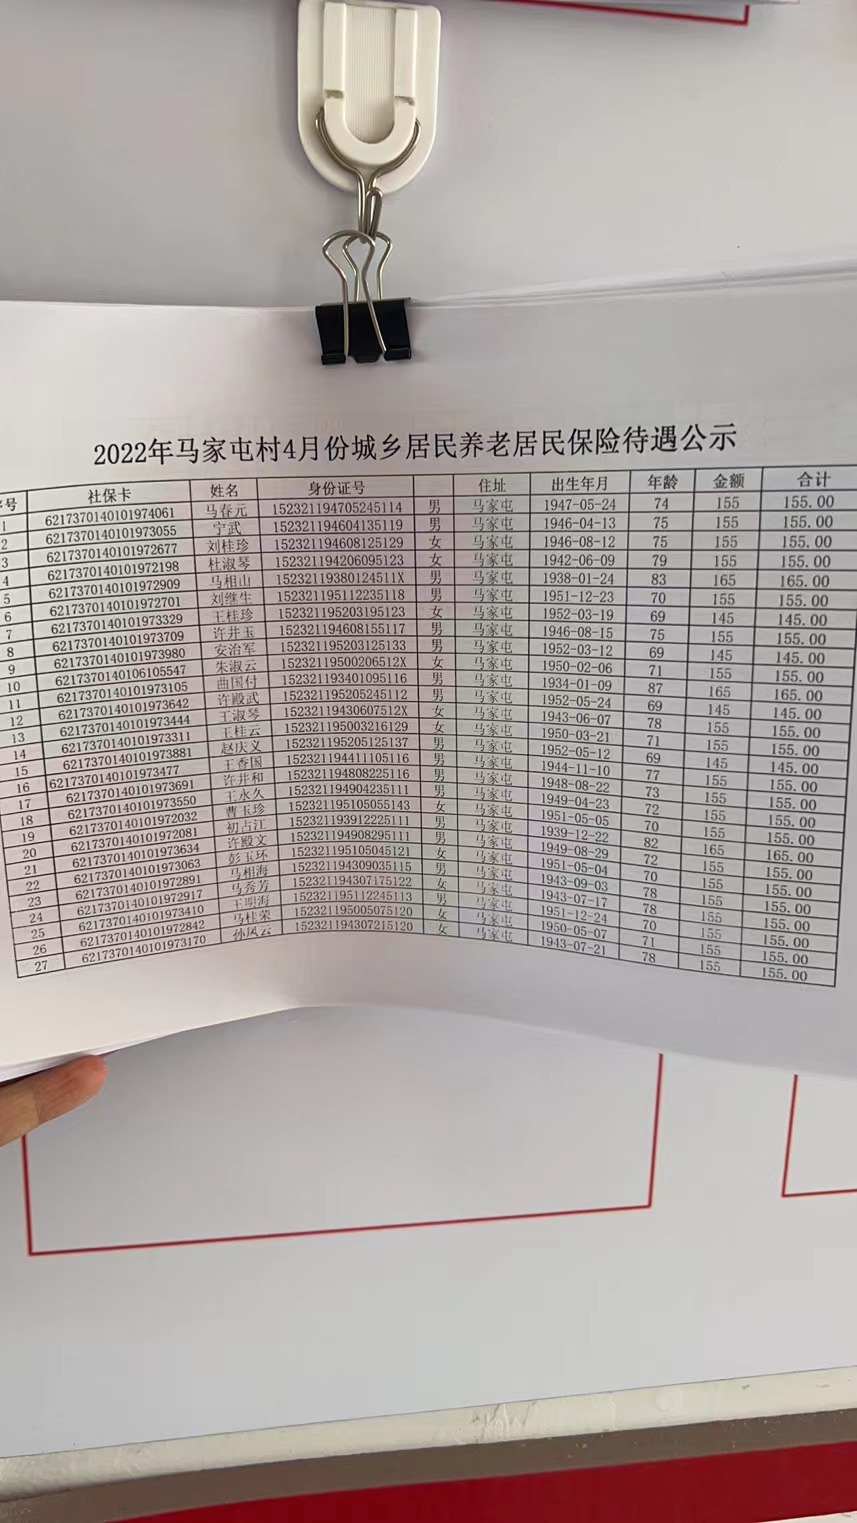 2022年马家屯村4月份城乡居民养老居民保险待遇公示
序号 社保卡 姓名 身份证号 住址 出生年月 年龄 金额 合计
1 6217370140101974061 马春元 152321194705245114 男 马家屯 1947-05-24 74 155 155.00
2 6217370140101973055 宁武 152321194604135119 男 马家屯 1946-04-13 75 155 155.00
3 6217370140101972677 刘桂珍 152321194608125129 女 马家屯 1946-08-12 75 155 155.00
4 6217370140101972198 杜淑琴 152321194206095123 女 马家屯 1942-06-09 79 155 155.00
5 6217370140101972909 马相山 15232119380124511X 男 马家屯 1938-01-24 83 165 165.00
6 6217370140101972701 刘继生 152321195112235118 男 马家屯 1951-12-23 70 155 155.00
7 6217370140101973329 王桂珍 152321195203195123 女 马家屯 1952-03-19 69 145 145.00
8 6217370140101973709 许井玉 152321194608155117 男 马家屯 1946-08-15 75 155 155.00
9 6217370140101973980 安治军 152321195203125133 男 马家屯 1952-03-12 69 145 145.00
10 6217370140106105547 朱淑云 15232119500206512X 女 马家屯 1950-02-06 71 155 155.00
11 6217370140101973105 曲国付 152321193401095116 男 马家屯 1934-01-09 87 165 165.00
12 6217370140101973642 许殿武 152321195205245112 男 马家屯 1952-05-24 69 145 145.00
13 6217370140101973444 王淑琴 15232119430607512X 女 马家屯 1943-06-07 78 155 155.00
14 6217370140101973311 王桂云 152321195003216129 女 马家屯 1950-03-21 71 155 155.00
15 6217370140101973881 赵庆义 152321195205125137 男 马家屯 1952-05-12 69 145 145.00
16 6217370140101973477 王香国 152321194411105116 男 马家屯 1944-11-10 77 155 155.00
17 6217370140101973691 许井和 152321194808225116 男 马家屯 1948-08-22 73 155 155.00
18 6217370140101973550 王永久 152321194904235111 男 马家屯 1949-04-23 72 155 155.00
19 6217370140101972032 曹玉珍 152321195105055143 女 马家屯 1951-05-05 70 155 155.00
20 6217370140101972081 初占江 152321193912225111 男 马家屯 1939-12-22 82 165 165.00
21 6217370140101973634 许殿文 152321194908295111 男 马家屯 1949-08-29 72 155 155.00
22 6217370140101973063 彭玉环 152321195105045121 女 马家屯 1951-05-04 70 155 155.00
23 6217370140101972891 马相海 152321194309035115 男 马家屯 1943-09-03 78 155 155.00
24 6217370140101972917 马秀芳 152321194307175122 女 马家屯 1943-07-17 78 155 155.00
25 6217370140101973410 王明海 152321195112245113 男 马家屯 1951-12-24 70 155 155.00
26 6217370140101972842 马桂荣 152321195005075120 女 马家屯 1950-05-07 71 155 155.00
27 6217370140101973170 孙凤云 152321194307215120 女 马家屯 1943-07-21 78 155 155.00